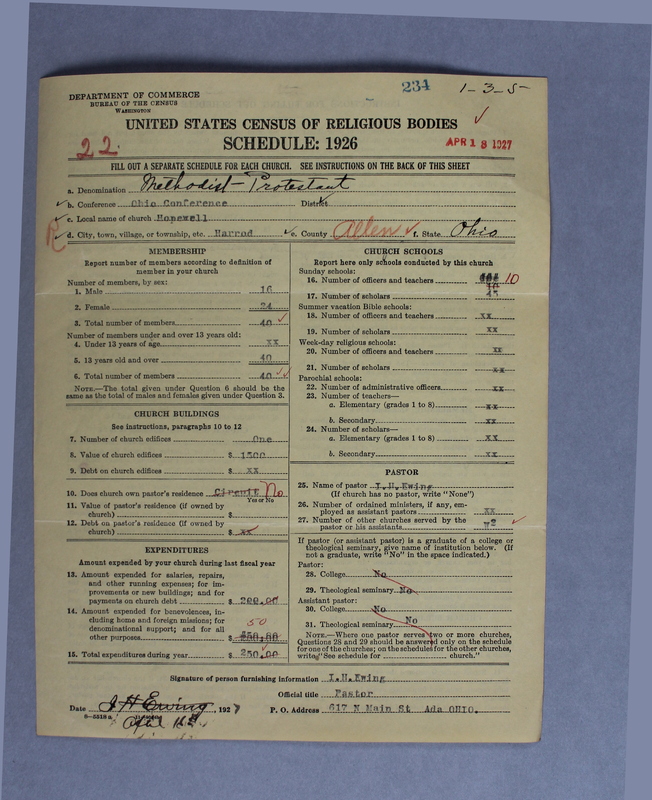 234 1-3-5-
DEPARTMENT OF COMMERCE
BUREAU OF THE CENSUS
WASHINGTON
UNITED STATES CENSUS OF RELIGIOUS BODIES
22. SCHEDULE: 1926 APR 18 1927
FILL OUT A SEPARATE SCHEDULE FOR EACH CHURCH. SEE INSTRUCTIONS ON THE BACK OF THIS SHEET
a. Denomination Methodist-Protestant
b. Conference Ohio Conference District
c. Local name of church Hopewell
R d. City, town, village, or township, etc. Harrod e. County Allen f. State Ohio
MEMBERSHIP
Report number of members according to definition of
member in your church
Number of members, by sex:
1. Male 16
2. Female 24
3. Total number of members 40
Number of members under and over 13 years old:
4. Under 13 years of age xx
5. 13 years old and over 40
6. Total number of members 40
7. NOTE.—The total given under Question 6 should be
same as the total of males and females given under Question 3.
CHURCH BUILDINGS
See instructions, paragraphs 10 to 12
7. Number of church edifices One
8. Value of church edifices $ 1500
9. Debt on church edifices $ xx
10. Does church own pastor's residence Circuit No
Yes or No
11. Value of pastor's residence (if owned by
church) $
12. Debt on pastor's residence (if owned by
church) $ xx
EXPENDITURES
Amount expended by your church during last fiscal year
13. Amount expended for salaries, repairs,
and other running expenses; for im-
provements or new buildings; and for
payments on church debt $ 200.00
14. Amount expended for benevolences, in-
cluding home and foreign missions; for 50
denominational support; and for all
other purposes $
15. Total expenditures during year $ 250.00
CHURCH SCHOOLS
Report here only schools conducted by this church
Sunday schools:
16. Number of officers and teachers 10
17. Number of scholars 45
Summer vacation Bible schools:
18. Number of officers and teachers xx
19. Number of scholars xx
Week-day religious schools:
20. Number of officers and teachers xx
21. Number of scholars xx
Parochial schools:
22. Number of administrative officers xx
23. Number of teachers—
a. Elementary (grades 1 to 8) xx
b. Secondary xx
24. Number of scholars—
a. Elementary (grades 1 to 8) xx
b. Secondary xx
PASTOR
25. Name of pastor I.H.Ewing
(If church has no pastor, write "None")
26. Number of ordained ministers, if any, em-
ployed as assistant pastors xx
27. Number of other churches served by the
pastor or his assistants 2
If pastor (or assistant pastor) is a graduate of a college or
theological seminary, give name of institution below. (If
not a graduate, write "No" in the space indicated.)
Pastor:
28. College No
29. Theological seminary No
Assistant pastor:
30. College No
31. Theological seminary No
NOTE.—Where one pastor serves two or more churches,
Questions 28 and 29 should be answered only on the schedule
for one of the churches; on the schedules for the other churches,
write "See schedule for church."
Signature of person furnishing information I.H.Ewing
Official title Pastor
Date I H Ewing, 1927 P. O. Address 617 N Main St Ada OHIO.
8-5518a
April 16